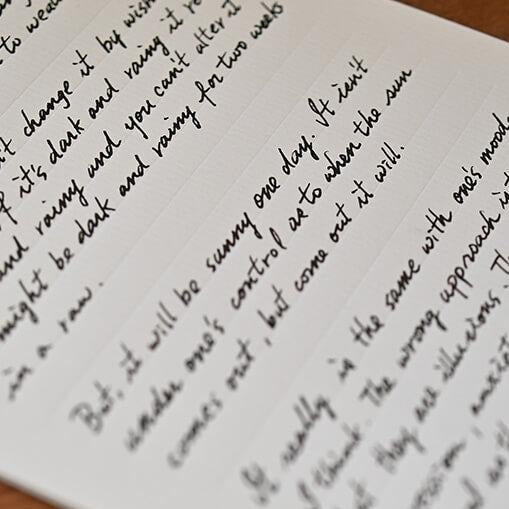 to wea
change it by wish
if it's dark and raing it re
and rainy and you can't alter it
might be dark and rainy for two weeks
in a raw.
But, it will be sunny one day. It isn't
under one's control as to when the sun
comes out, but come out it will.
It really is the same with one's mood
I think. The wrong approach is t
they are illusions. Th
ession, anxie